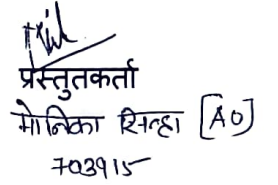 प्रस्तुतकर्ता
मोनिका सिन्हा [AO]
703915